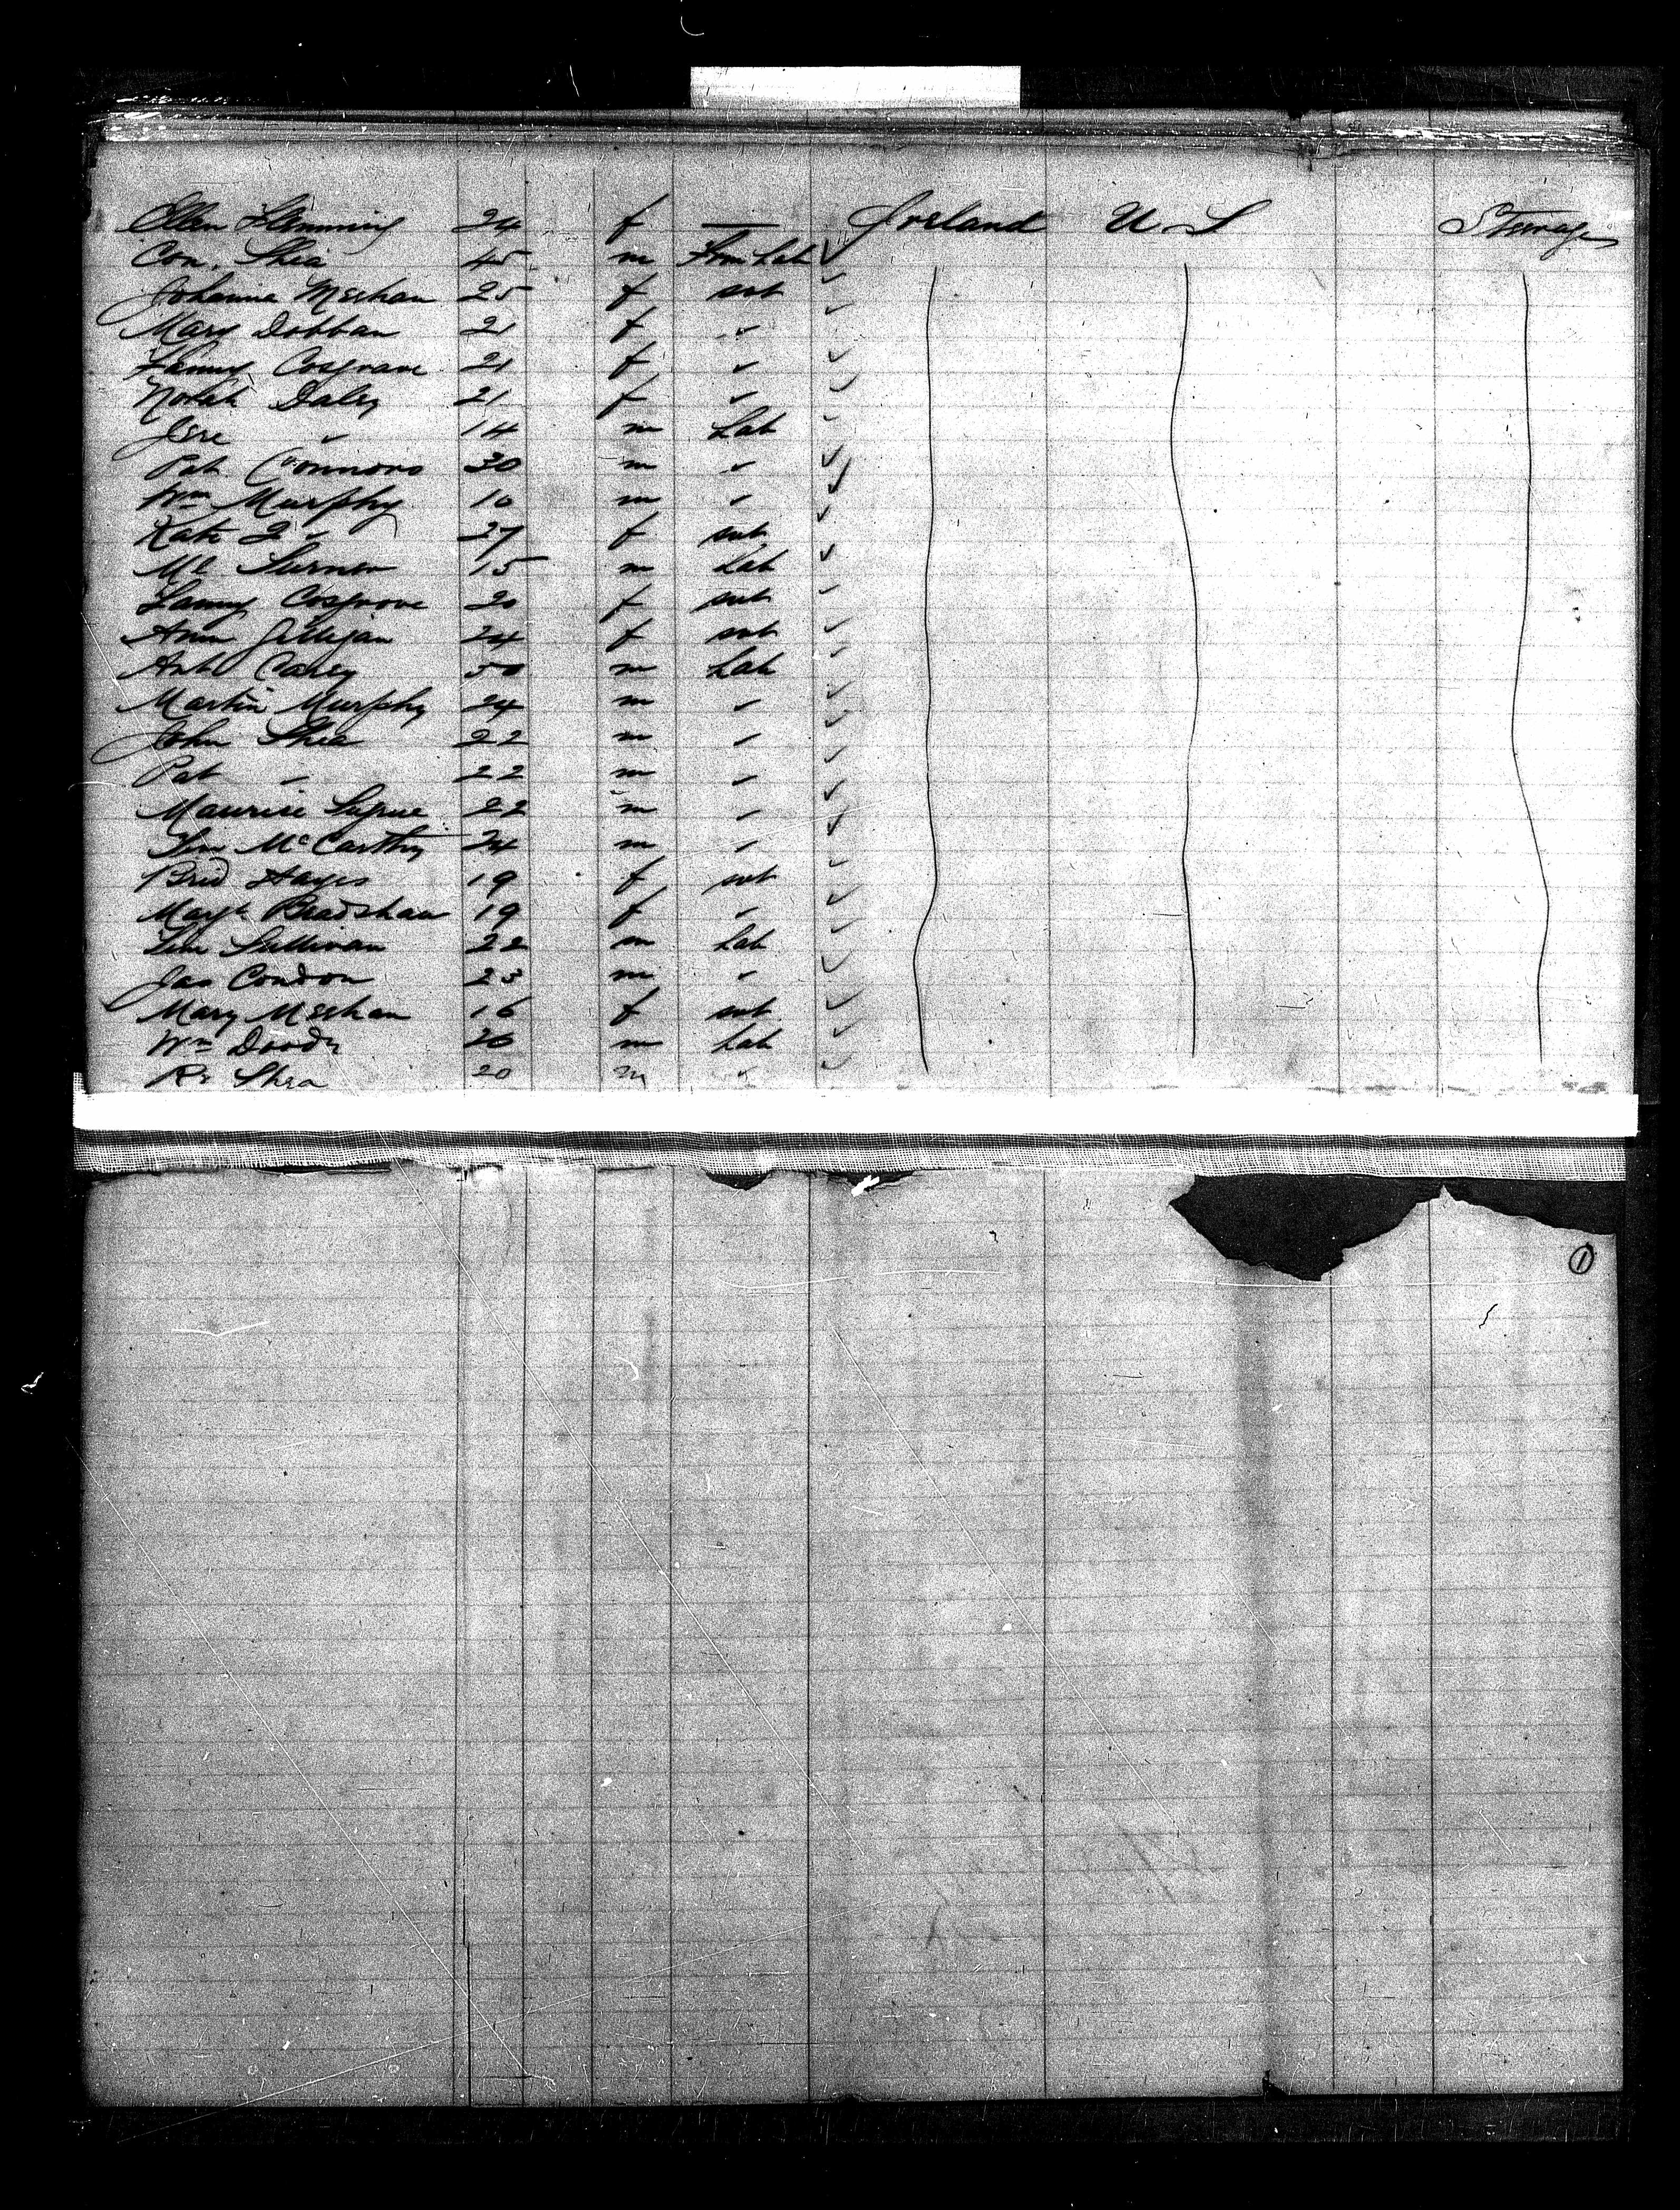 Ellen Flemming 24 f — Ireland U-S Steerage
Con. Shea 45 m Frm Lab ✓
Johanna Meehan 25 f svt ✓
Mary 21 f ✓ ✓
Fanny Cosgrave 21 f ✓ ✓
Norah Daley 21 f ✓ ✓
Jere ✓ 14 m Lab ✓
Pat Connors 30 m ✓ ✓
Wm Murphy 10 m ✓ ✓
Kate 27 f svt ✓
15 m Lab ✓
Fanny Cosgrove 20 f svt ✓
Ann Gilligan 24 f svt ✓
Carey 50 m Lab ✓
Martin Murphy 24 m ✓ ✓
John Shea 22 m ✓ ✓
Pat ✓ 22 m ✓ ✓
Maurice 22 m ✓ ✓
McCarthy 24 m ✓ ✓
Brid Hayes 19 f svt ✓
Margt Bradshaw 19 f ✓ ✓
Sullivan 22 m Lab ✓
Jas Condon 23 m ✓ ✓
Mary Meehan 16 f svt ✓
Wm Doody 26 m Lab ✓
Shea 20 m ✓ ✓
1